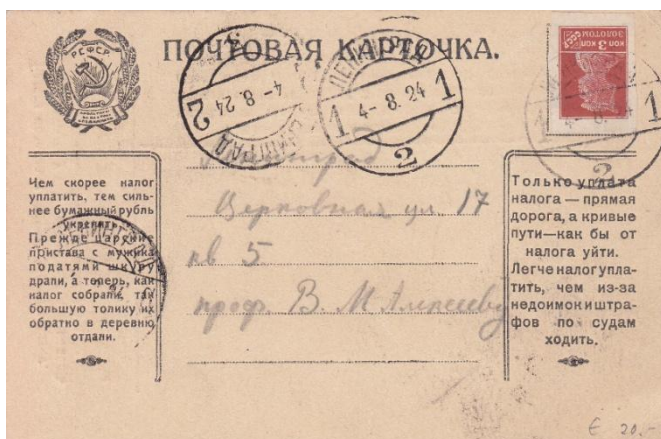 РСФСР
ПОЧТОВАЯ КАРТОЧКА.
3 КОП
ЗОЛОТОМ
ЛЕНИНГРАД
4-8.24
2
ЛЕНИНГРАД
1 4-8.24 1
2
Чем скорее налог
уплатить, тем силь-
нее бумажный рубль
укрепить.
Прежде царские
пристава с мужика
податями шкуру
драли, а теперь, как
налог собрали, так
большую толику их
обратно в деревню
отдали.
Ленинград
Церковная ул 17
кв 5
проф. В М Алексееву
Только уплата
налога — прямая
дорога, а кривые
пути—как бы от
налога уйти.
Легче налог упла-
тить, чем из-за
недоимок и штра-
фов по судам
ходить.
€ 20.-